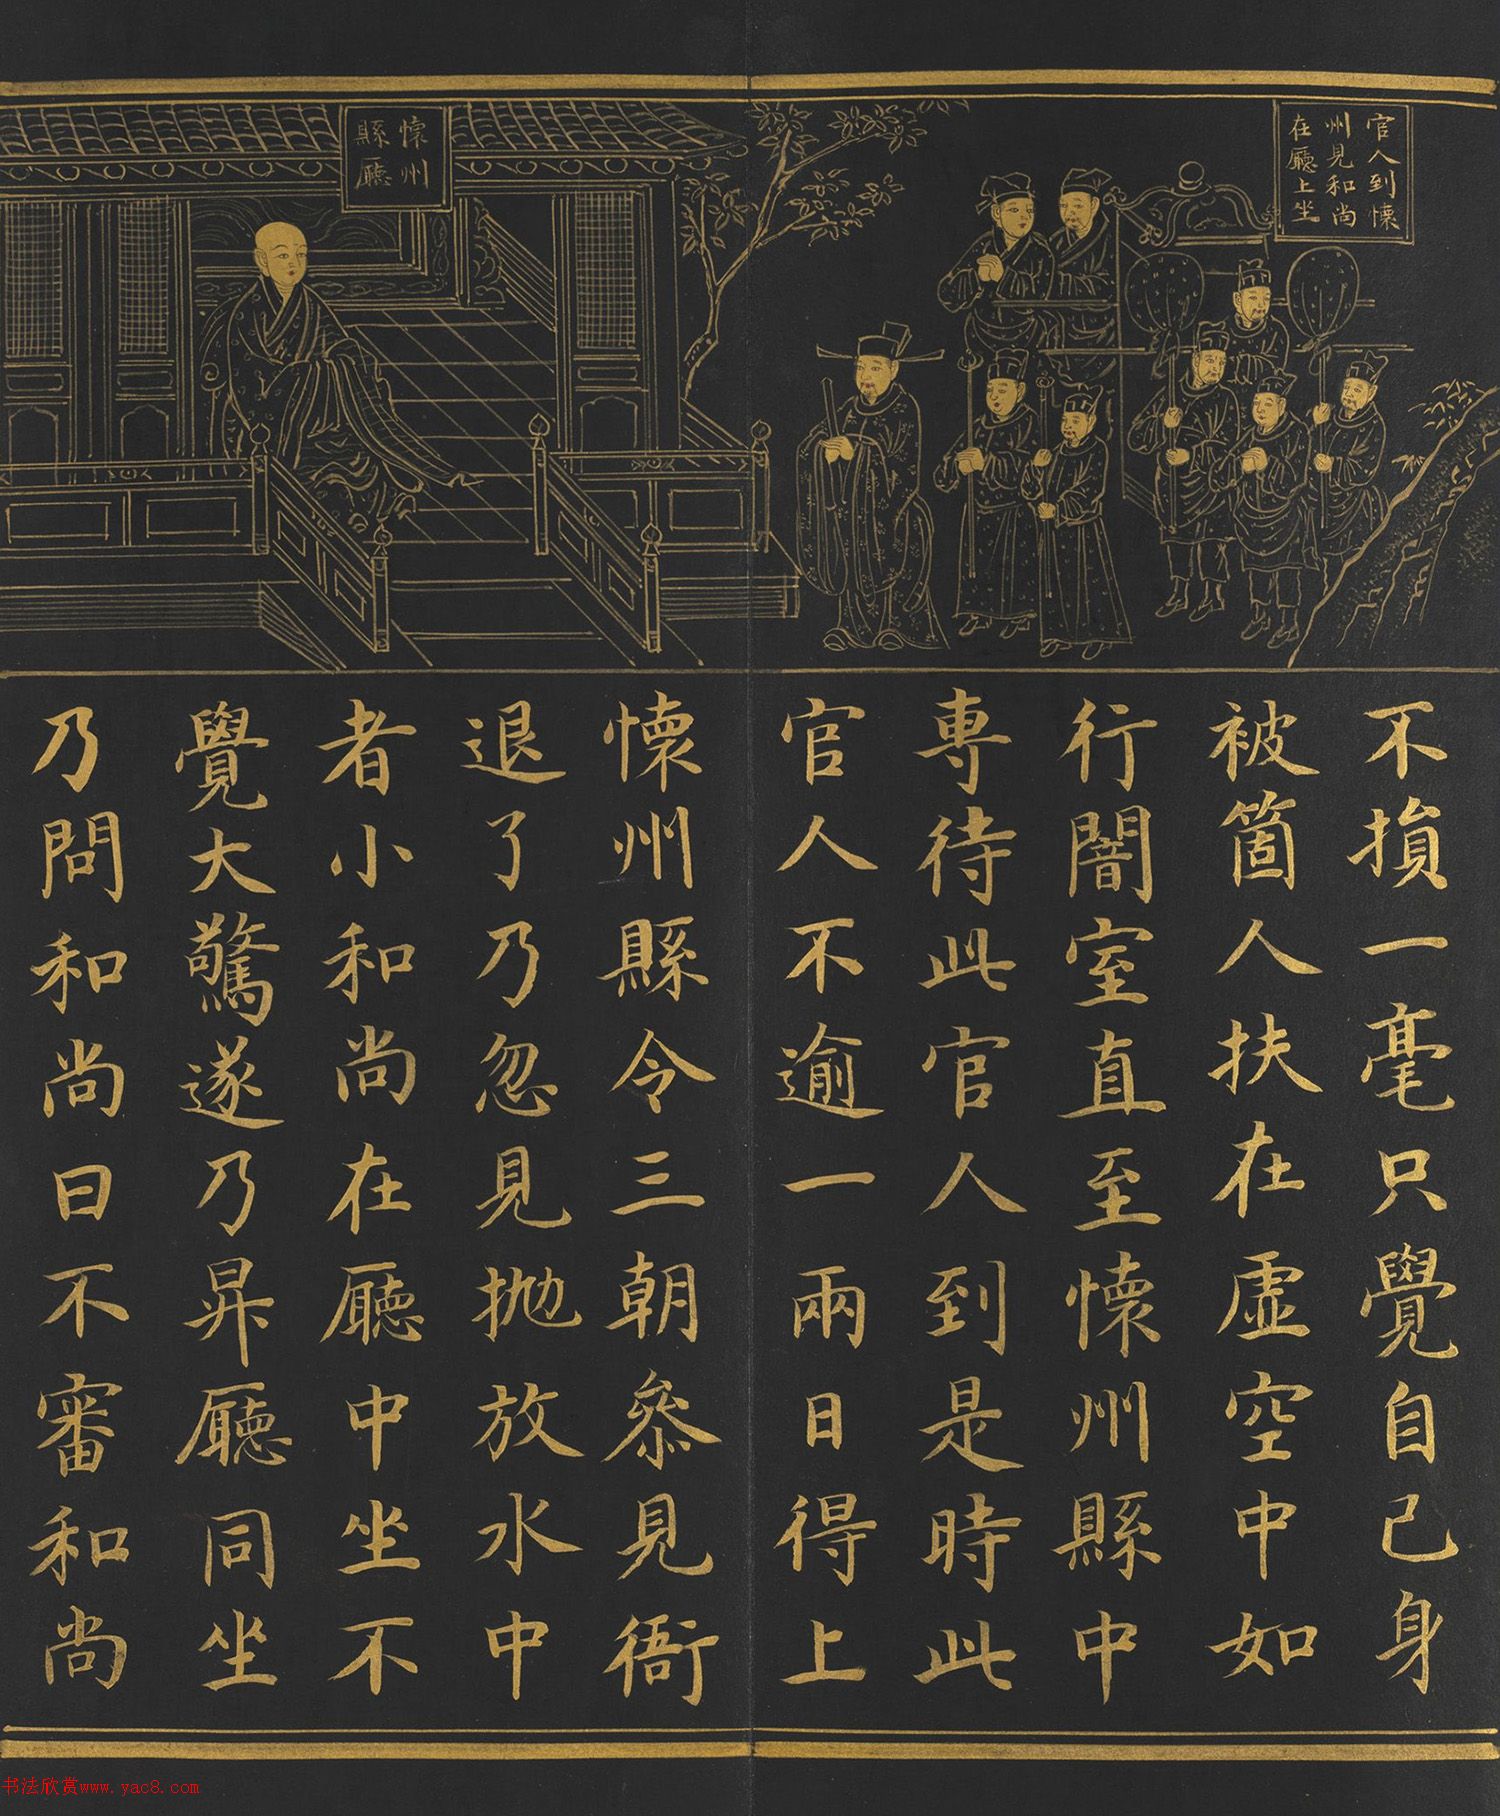 官人到懷
州見和尚
在廳上坐
懷州
縣廳
不損一毫只覺自己身
被箇人扶在虛空中如
行闇室直至懷州縣中
專待此官人到是時此
官人不逾一兩日得上
懷州縣令三朝叅見衙
退了乃忽見抛放水中
者小和尚在廳中坐不
覺大驚遂乃昇廳同坐
乃問和尚曰不審和尚
书法欣赏www.yac8.com